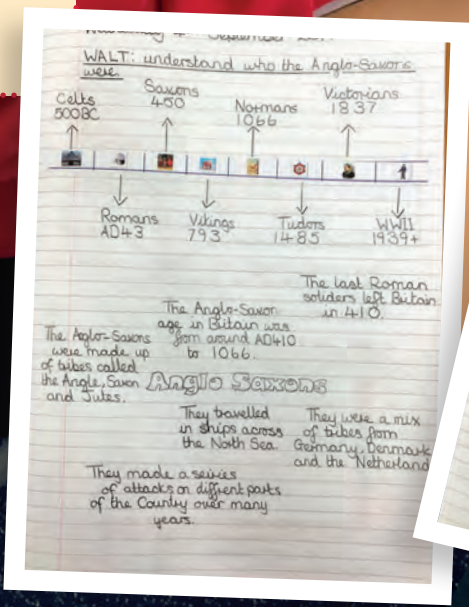 September
WALT: understand who the Anglo-Saxons
were
Celts
500BC
Saxons
450
Normans
1066
Victorians
1837
Romans
AD43
Vikings
793
Tudors
1485
WWII
1939+
The last Roman
soliders left Britain
in 410.
The Anglo-Saxon
age in Britain was
from around AD410
to 1066.
The Anglo-Saxons
were made up
of tribes called
the Angle, Saxon
and Jutes.
Anglo Saxons
They travelled
in ships across
the North Sea.
They were a mix
of tribes from
Germany, Denmark
and the Netherland
They made a seiries
of attacks on diffrent parts
of the Country over many
years.